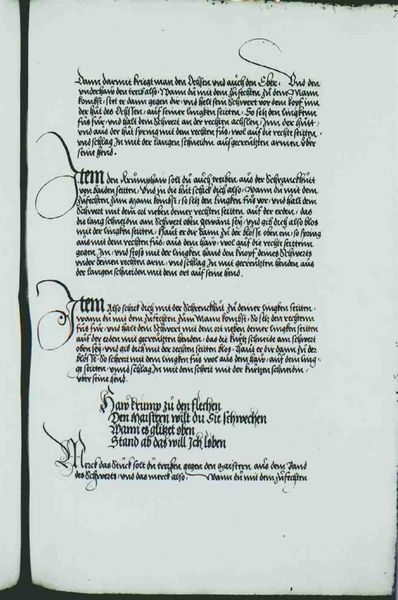 Dann darmit kriegt man den Ochssen und auch den Eber · Vnd den
vnderhaw den treib also · Wann du mit dem zufechten zu dem Mann
kombst · so stee dann gegen Im · und halt dein Schwert vor dem kopf inn
der hut des Ochssen · auf seiner lincken seitten · So setz den lincken
fus für · und halt dein Schwert an der rechten achsslen · Inn der hůt ·
und aus der hut spring mit dem rechten fus · wol auf die recht seitten ·
und schlag In mit der langen schneiden aus gereckten armen über
sein hend ·
Item den Krumphaw soltu auch treiben aus der Schranckhůt
von baiden seitten · Vnd in die hut schick dich also · Wann du mit dem
zufechten zum mann kombst · so setz den lincken fus vor · und halt dein
Schwert mit dem ort neben deiner rechten seitten · auf der erden · das
die lang schneid am Schwert oben gewant sey · und gib dich also blos
mit der lincken seitten · Haut er dir dann zu der blosse oben ein · so spring
aus mit dem rechten fus · aus dem haw · wol auf die recht seittenn
gegen In · und stoss mit der lincken hand den knopf deines Schwerts
under deinen rechten arm · und schlag In mit gereckten henden · aus
der langen schneiden mit dem ort auf seine hend ·
Item Also schick dich mit der Schrenckhut zu deiner lincken seitten ·
wann du mit dem zufechten zum Mann kombst · So setz den rechten
fus für · und halt dein Schwert mit dem ort neben deiner lincken seitten
auf der erden mit gereckten henden · das die kurtz schneid am schwert
oben sey · und gib dich mit der rechten seitten blos · Haut er dir dann zu der
blosse · So schreit mit dem lincken fus wol aus dem haw · auf dein linc-
ge seitten · und schlag In mit dem schert mit der kurtzen schneiden
über seine hend
Haw krump zu den flechen
Den Maistern wilst du Sie schwechen
Wann es glitzet oben
Stand ab das will Ich loben
Merck das Stuck solt du treiben gegen den maistern aus dem Band
des Schwerts · und das merck also · Wann du mit dem zufechten